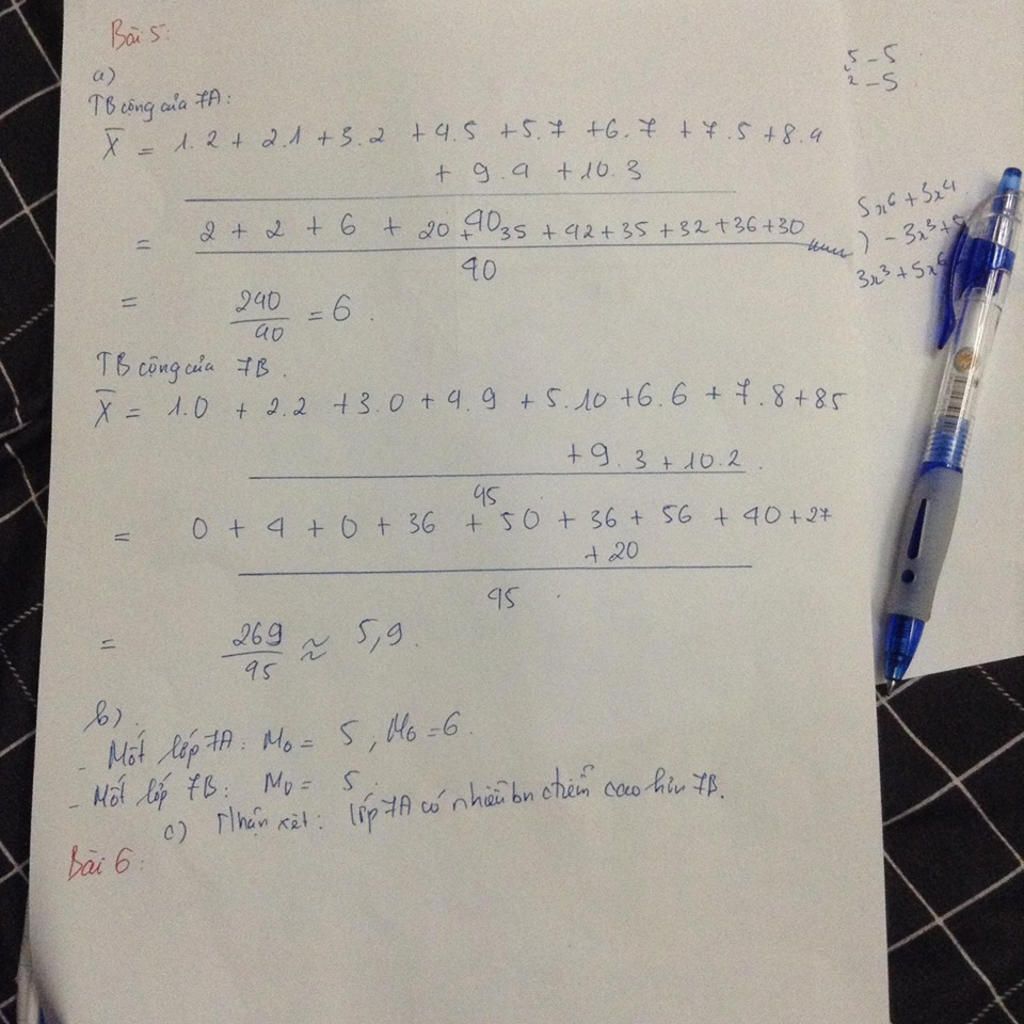 Bài 5:
a)
TB cộng của 7A:
X̄ = 1.2 + 2.1 + 3.2 + 4.5 + 5.7 + 6.7 + 7.5 + 8.4
+ 9.4 + 10.3
40
= 2 + 2 + 6 + 20 + 35 + 42 + 35 + 32 + 36 + 30
40
= 240
40
= 6.
TB cộng của 7B.
X̄ = 1.0 + 2.2 + 3.0 + 4.9 + 5.10 + 6.6 + 7.8 + 8.5
+ 9.3 + 10.2.
45
= 0 + 4 + 0 + 36 + 50 + 36 + 56 + 40 + 27
+ 20
45
= 269
45
≈ 5,9.
b).
- Mốt lớp 7A: M₀ = 5, M₀ = 6.
- Mốt lớp 7B: M₀ = 5
c) Nhận xét: lớp 7A có nhiều bn điểm cao hơn 7B.
Bài 6:
5 - 5
2 - 5
5x⁶ + 3x⁴
) - 3x³ +
3x³ + 5x⁶